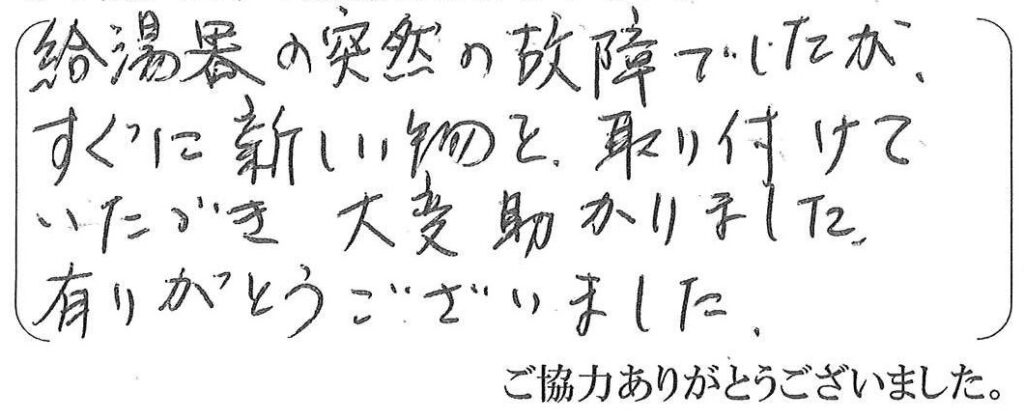 給湯器の突然の故障でしたが、
すぐに新しい物を、取り付けて
いただき 大変助かりました。
有りがとうございました。
ご協力ありがとうございました。